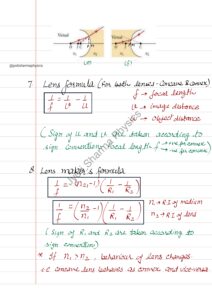 Virtual
Virtual
n₁
n₂
n₁
n₂
(e)
(f)
@potishermaphysics
7 Lens formula (for both lenses - concave & convex)
1/f = 1/v - 1/u
f → focal length
v → image distance
u → object distance
(Sign of u and v are taken according to
sign convention, focal length f → +ve for convex
→ -ve for concave)
8 Lens maker's formula
1/f = (n₂₁ - 1) (1/R₁ - 1/R₂)
1/f = (n₂/n₁ - 1) (1/R₁ - 1/R₂)
n₁ → R.I of medium
n₂ → R.I of lens
(Sign of R₁ and R₂ are taken according to
sign convention)
* If n₁ > n₂, behaviour of lens changes.
i.e concave lens behaves as convex and vice-versa
Sharma Physics